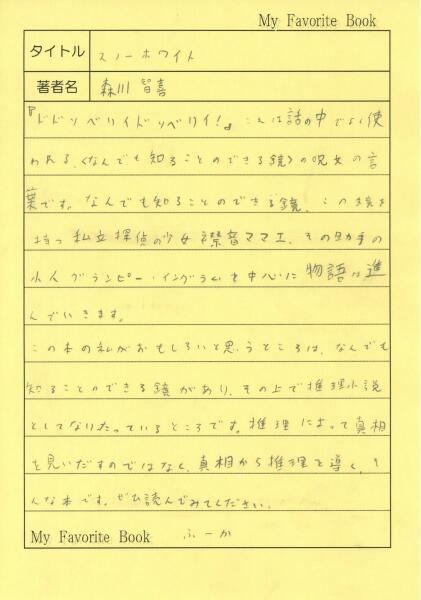 My Favorite Book
タイトル スノーホワイト
著者名 森川智喜
『ドドソベリイドソベリイ!』これは話の中でよく使
われる、〈なんでも知ることのできる鏡〉の呪文の言
葉です。なんでも知ることのできる鏡、この鏡を
持つ私立探偵の少女襟音ママエ、その助手の
小人グランピー・イングラムを中心に物語は進
んでいきます。
この本の私がおもしろいと思うところは、なんでも
知ることのできる鏡があり、その上で推理小説
としてなりたっているところです。推理によって真相
を見いだすのではなく、真相から推理を導く、そ
んな本です。ぜひ読んでみてください。
My Favorite Book ふーか